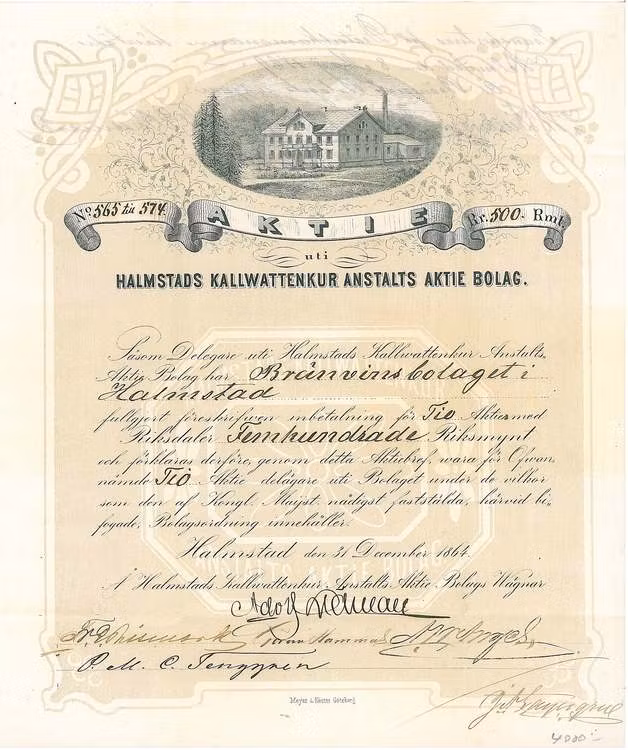 No. 565 till 574.
AKTIE
Rr. 500. Rmt.
uti
HALMSTADS KALLWATTENKUR ANSTALTS AKTIE BOLAG.
Såsom Delegare uti Halmstads Kallwattenkur Anstalts
Aktie Bolag har Bränvinsbolaget i
Halmstad
fullgjort föreskrifwen inbetalning för Tio Aktier med
Riksdaler Femhundrade Riksmynt
och förklaras derföre, genom detta Aktiebref, wara för Ofwan
nämde Tio Aktie delägare uti Bolaget under de vilkor
som den af Kongl. Majst. nådigst fastställda, härvid bi-
fogade, Bolagsordning innehåller.
Halmstad den 31 December 1864.
Å Halmstads Kallwattenkur Anstalts Aktie Bolags Wägnar
Adolf
P. M. C. Tenggren
ANSTALTS AKTIE BOLAG.
Meyer & Köster Göteborg
4000:-